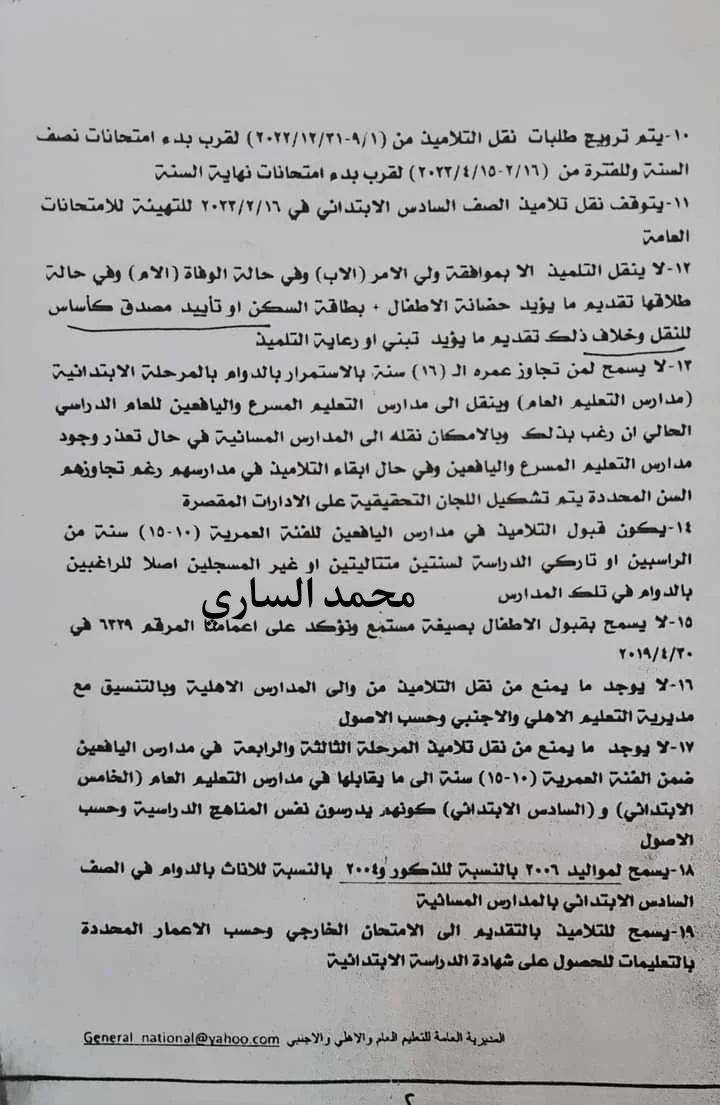 ١٠-يتم ترويج طلبات نقل التلاميذ من (٩/١-٢٠٢٢/١٢/٣١) لقرب بدء امتحانات نصف
السنة وللفترة من (٢/١٦-٢٠٢٣/٤/١٥) لقرب بدء امتحانات نهاية السنة
١١-يتوقف نقل تلاميذ الصف السادس الابتدائي في ٢٠٢٣/٢/١٦ للتهيئة للامتحانات
العامة
١٢-لا ينقل التلميذ الا بموافقة ولي الامر (الاب) وفي حالة الوفاة (الام) وفي حالة
طلاقها تقديم ما يؤيد حضانة الاطفال + بطاقة السكن او تأييد مصدق كأساس
للنقل وخلاف ذلك تقديم ما يؤيد تبني او رعاية التلميذ
١٣-لا يسمح لمن تجاوز عمره الـ (١٦) سنة بالاستمرار بالدوام بالمرحلة الابتدائية
(مدارس التعليم العام) وينقل الى مدارس التعليم المسرع واليافعين للعام الدراسي
الحالي ان رغب بذلك وبالامكان نقله الى المدارس المسائية في حال تعذر وجود
مدارس التعليم المسرع واليافعين وفي حال ابقاء التلاميذ في مدارسهم رغم تجاوزهم
السن المحددة يتم تشكيل اللجان التحقيقية على الادارات المقصرة
١٤-يكون قبول التلاميذ في مدارس اليافعين للفئة العمرية (١٠-١٥) سنة من
الراسبين او تاركي الدراسة لسنتين متتاليتين او غير المسجلين اصلا للراغبين
بالدوام في تلك المدارس
محمد الساري
١٥-لا يسمح بقبول الاطفال بصيغة مستمع ونؤكد على اعمامنا المرقم ٦٣٣٩ في
٢٠١٩/٤/٣٠
١٦-لا يوجد ما يمنع من نقل التلاميذ من والى المدارس الاهلية وبالتنسيق مع
مديرية التعليم الاهلي والاجنبي وحسب الاصول
١٧-لا يوجد ما يمنع من نقل تلاميذ المرحلة الثالثة والرابعة في مدارس اليافعين
ضمن الفئة العمرية (١٠-١٥) سنة الى ما يقابلها في مدارس التعليم العام (الخامس
الابتدائي) و (السادس الابتدائي) كونهم يدرسون نفس المناهج الدراسية وحسب
الاصول
١٨-يسمح لمواليد ٢٠٠٦ بالنسبة للذكور و٢٠٠٤ بالنسبة للاناث بالدوام في الصف
السادس الابتدائي بالمدارس المسائية
١٩-يسمح للتلاميذ بالتقديم الى الامتحان الخارجي وحسب الاعمار المحددة
بالتعليمات للحصول على شهادة الدراسة الابتدائية
المديرية العامة للتعليم العام والاهلي والاجنبي General_national@yahoo.com
٢